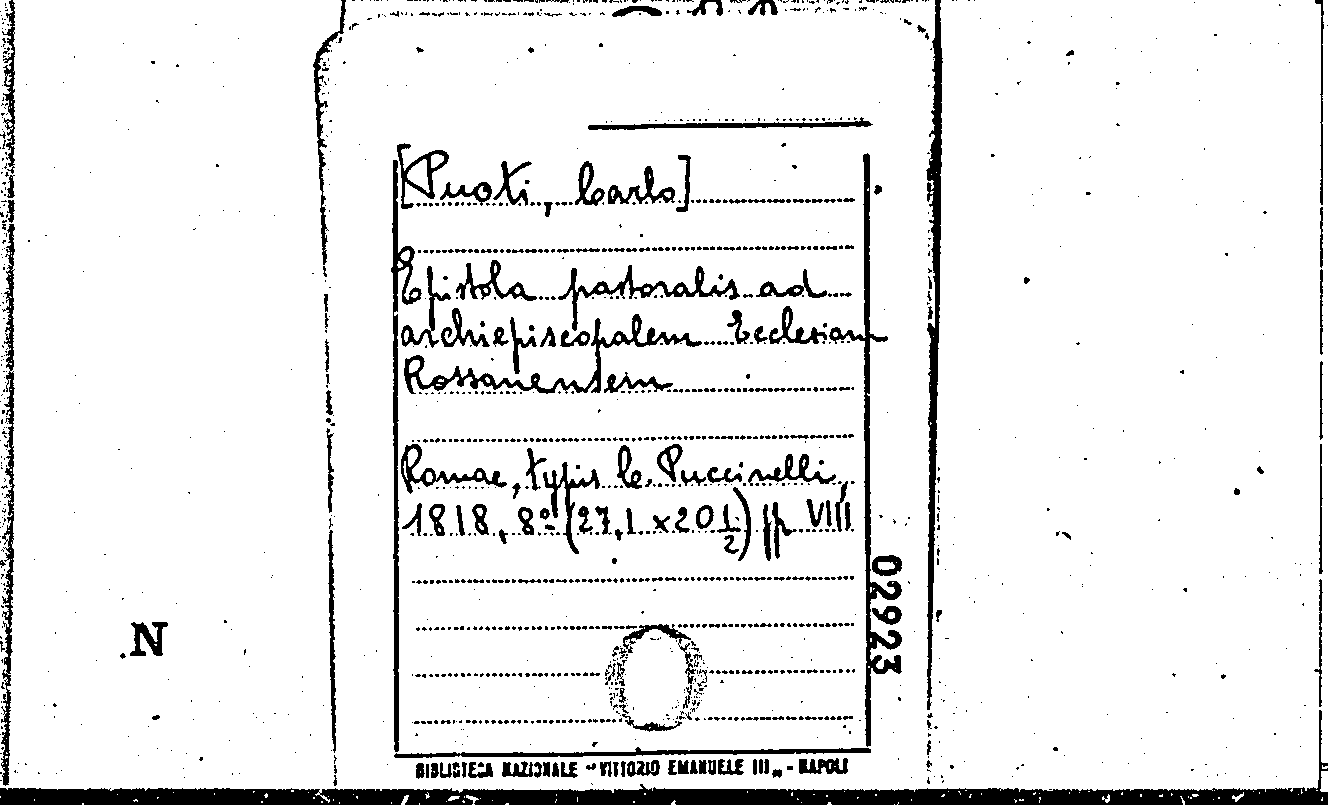 [Puoti, Carlo]
Epistola pastoralis ad
archiepiscopalem Ecclesiam
Rossanensem
Romae, typis C. Puccinelli,
1818, 8º (27,1 x 20 1/2) pp VIII
02923
N
BIBLIOTECA NAZIONALE "VITTORIO EMANUELE III" - NAPOLI